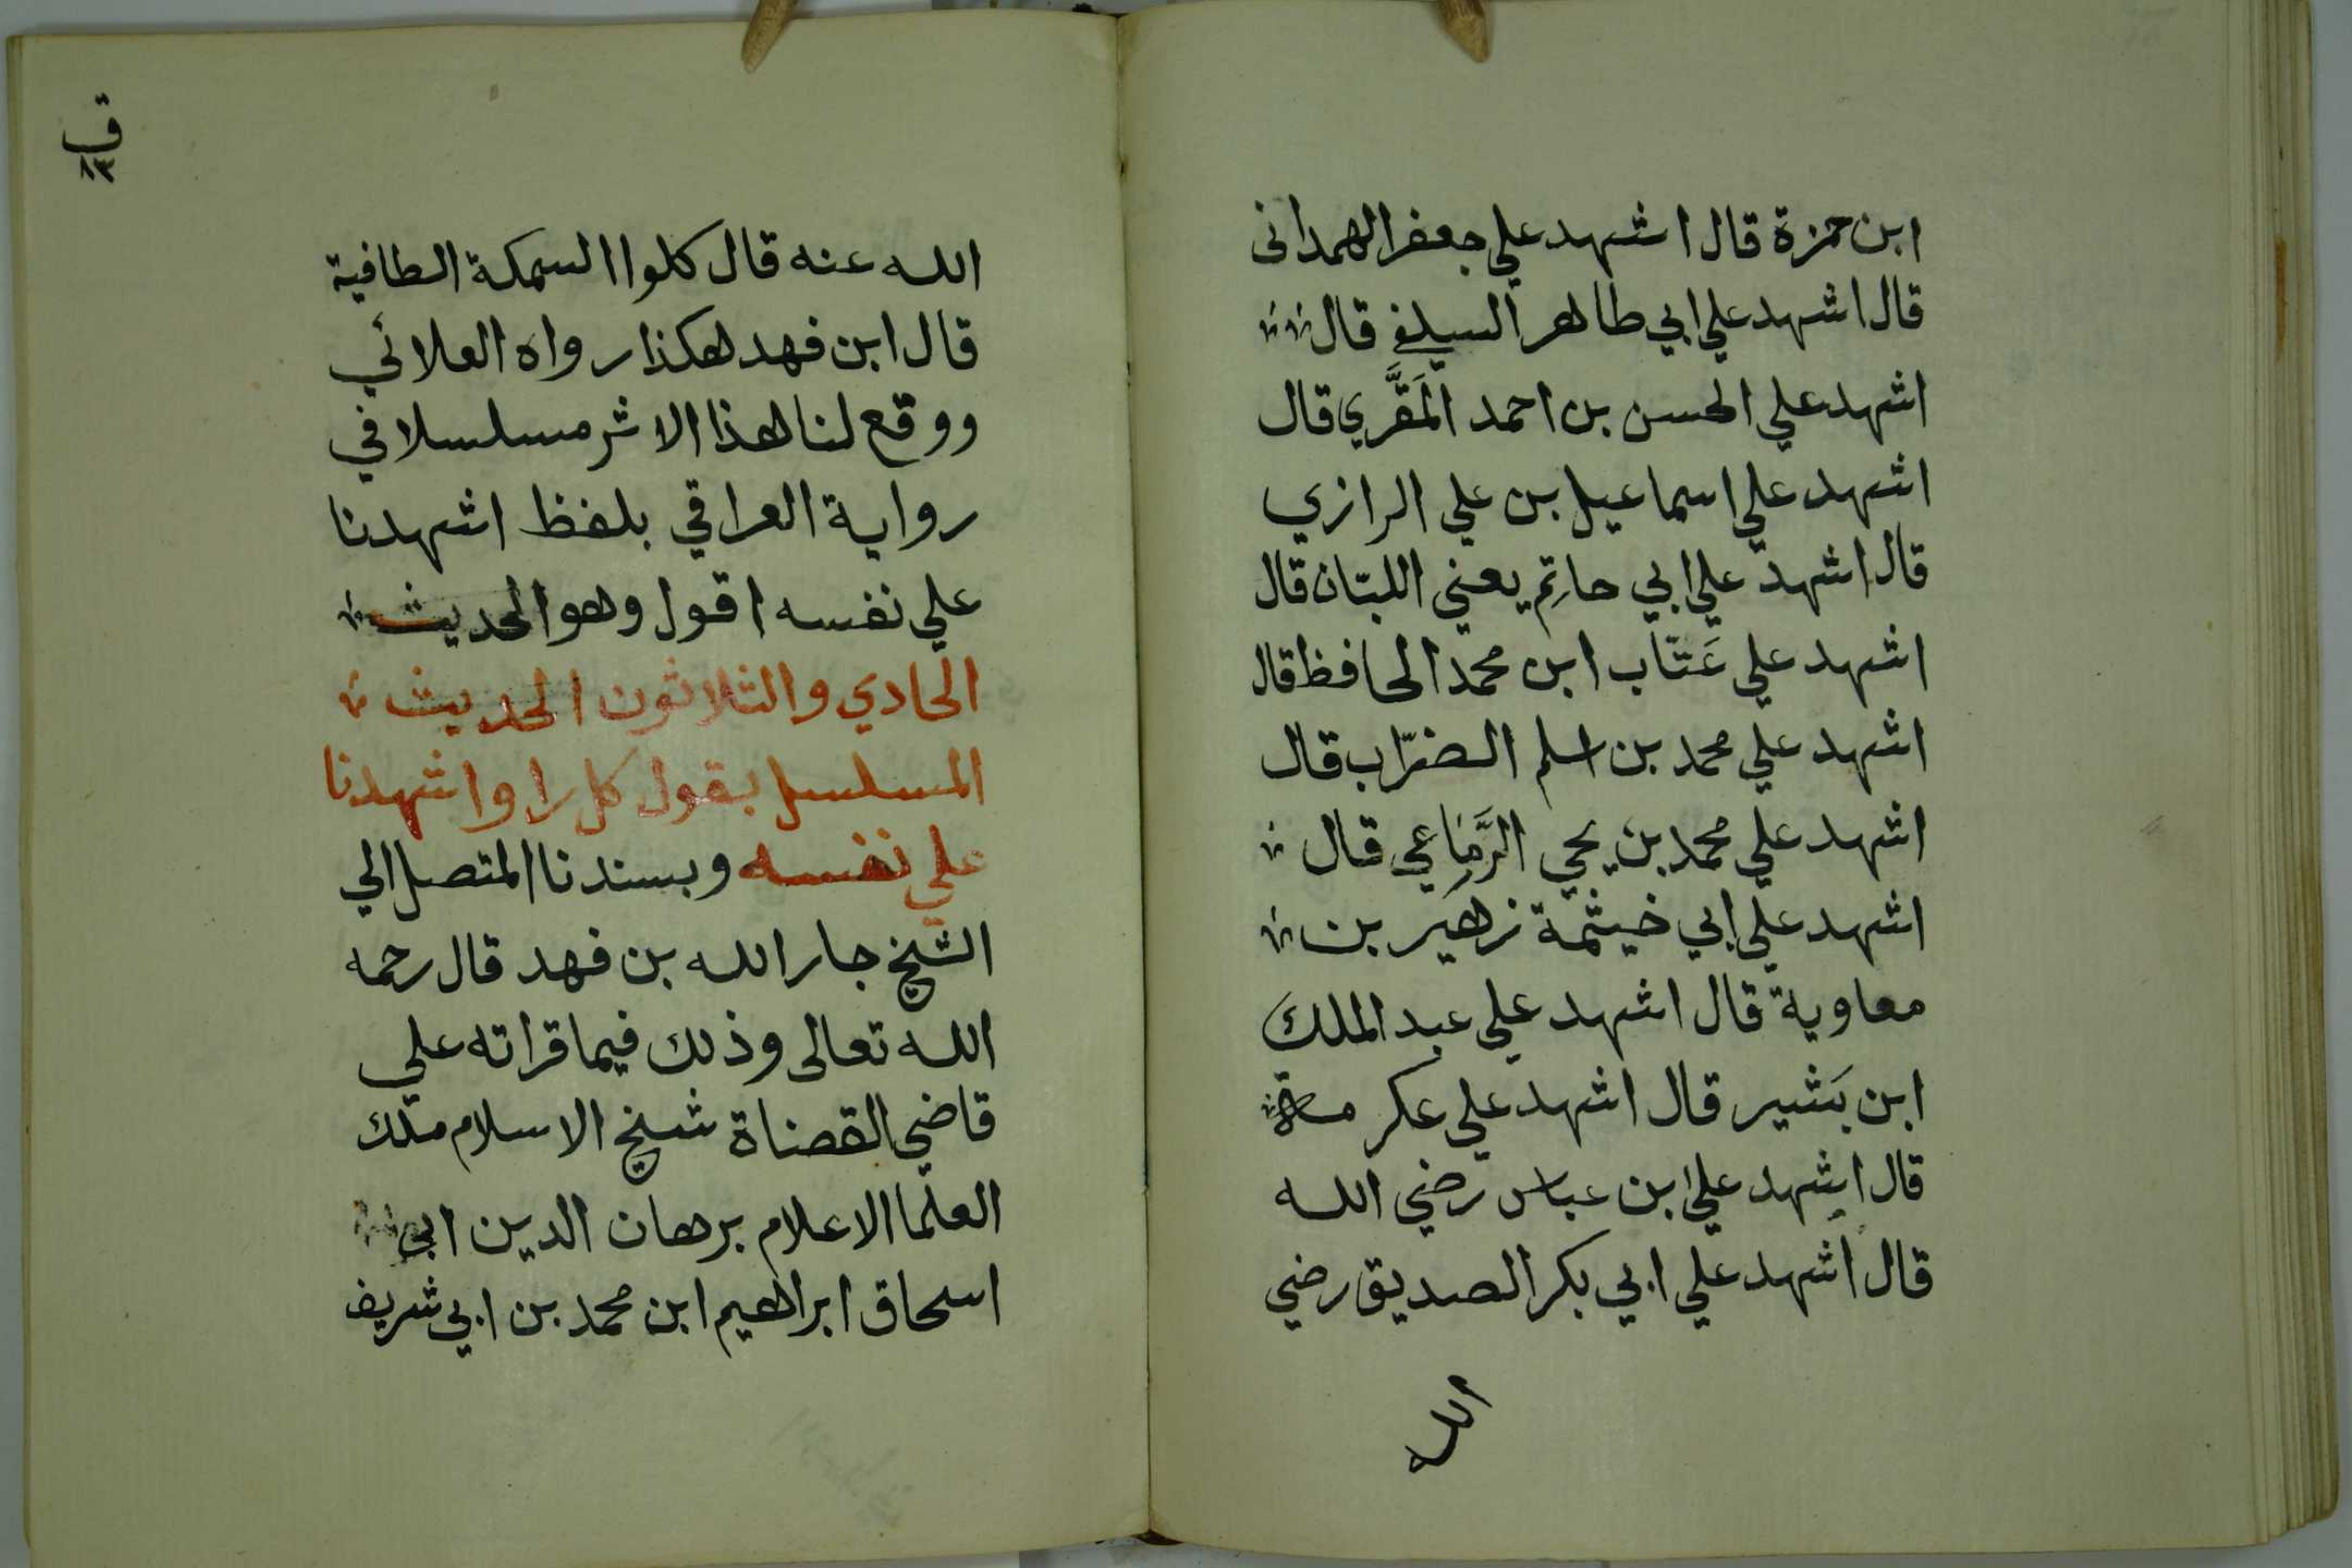 ابن حمزة قال اشهد علي جعفر الهمداني
قال اشهد علي ابي طاهر السِلَفي قال
اشهد علي الحسن بن احمد المَقَّري قال
اشهد علي اسماعيل بن علي الرازي
قال اشهد علي ابي حاتِم يعني اللبّان قال
اشهد علي عَتّاب ابن محمد الحافظ قال
اشهد علي محمد بن اسلم الضرّاب قال
اشهد علي محمد بن يحي قال
اشهد علي ابي خيثمة زهير بن
معاوية قال اشهد علي عبد الملك
ابن بَشير قال اشهد علي عكرمة
قال اشهد علي ابن عباس رضي الله
قال اشهد علي ابي بكر الصديق رضي
الله
الله عنه قال كلوا السمكة الطافية
قال ابن فهد هكذا رواه العلائي
ووقع لنا هذا الاثر مسلسلا في
رواية العراقي بلفظ اشهدنا
علي نفسه اقول وهو الحديث
الحادي والثلاثون الحديث
المسلسل بقول كل راو اشهدنا
علي نفسه وبسندنا المتصل الي
الشيخ جار الله بن فهد قال رحمه
الله تعالى وذلك فيما قراته علي
قاضي القضاة شيخ الاسلام ملك
العلما الاعلام برهان الدين ابي
اسحاق ابراهيم ابن محمد بن ابي شريف